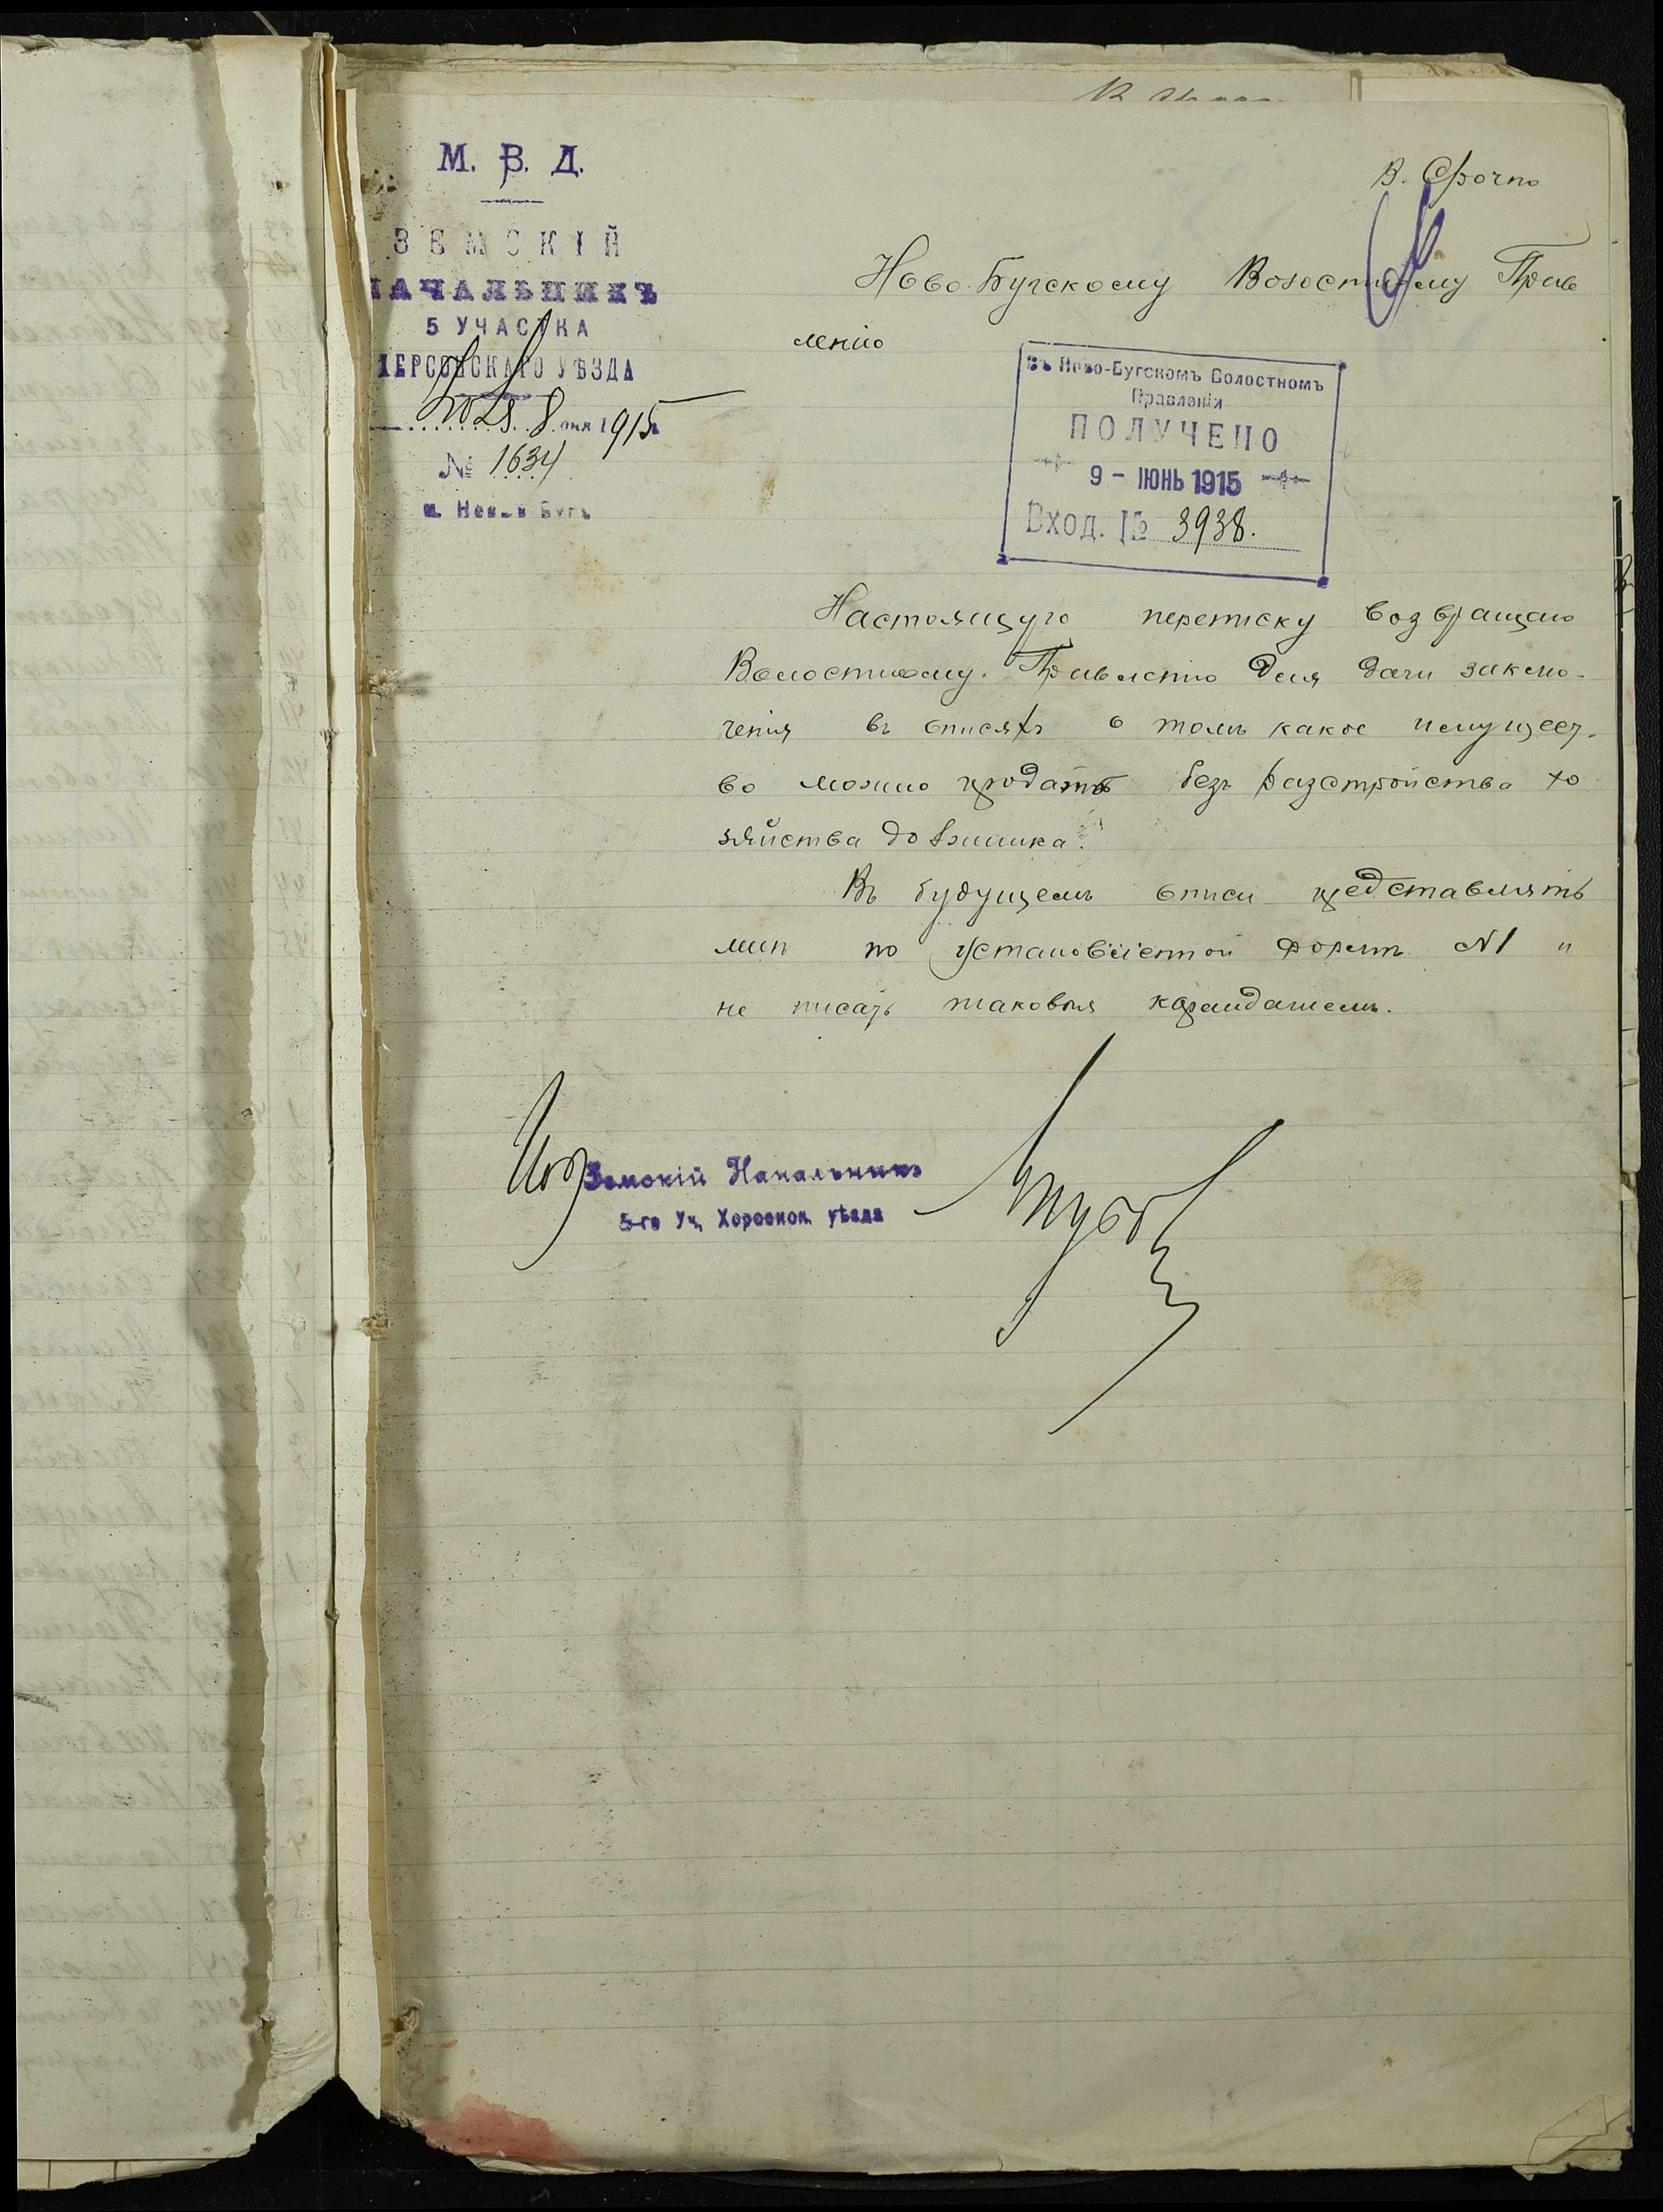 М. В. Д.
ЗЕМСКІЙ
НАЧАЛЬНИКЪ
5 УЧАСТКА
ХЕРСОНСКАГО УѢЗДА
8 1915
№ 1634
м. Новый Бугъ
В. Срочно
Ново-Бугскому Волостному Прав
ленію
Въ Ново-Бугскомъ Волостномъ
Правленіи
ПОЛУЧЕНО
9 - ІЮНЬ 1915
Вход. № 3938.
Настоящую переписку возвращаю
Волостному Правленію для дачи заклю-
ченія въ описяхъ о томъ какое имущест-
во можно продать безъ разстройства хо
зяйства должника.
Въ будущемъ описи представлять
мнѣ по установленной формѣ №1 и
не писать таковыя карандашемъ.
Земскій Начальникъ
5-го Уч. Херсонск. уѣзда